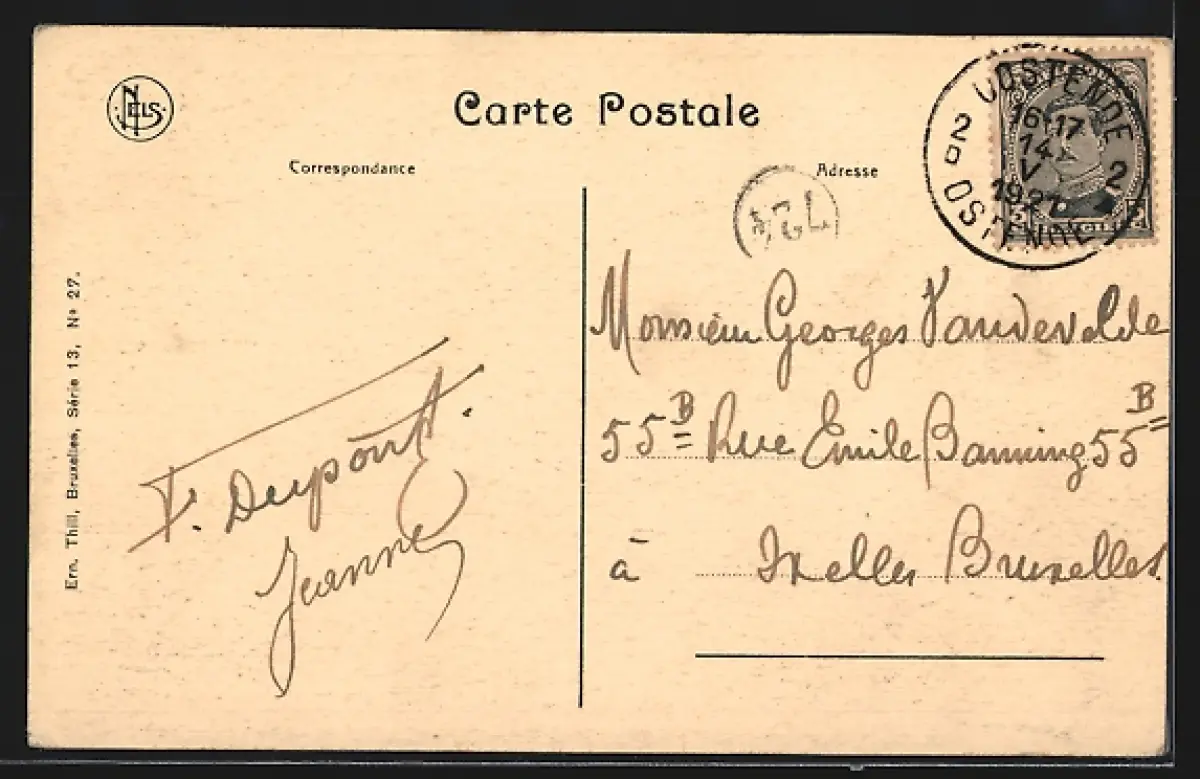 NELS
Carte Postale
Correspondance
Adresse
OOSTENDE
2 2
16-17
14
V
1921
D OSTENDE
Monsieur Georges Vandevelde
55B Rue Emile Banning 55B
à Ixelles Bruxelles.
F. Dupont.
Jeanne
Ern. Thill, Bruxelles, Série 13, No 27.